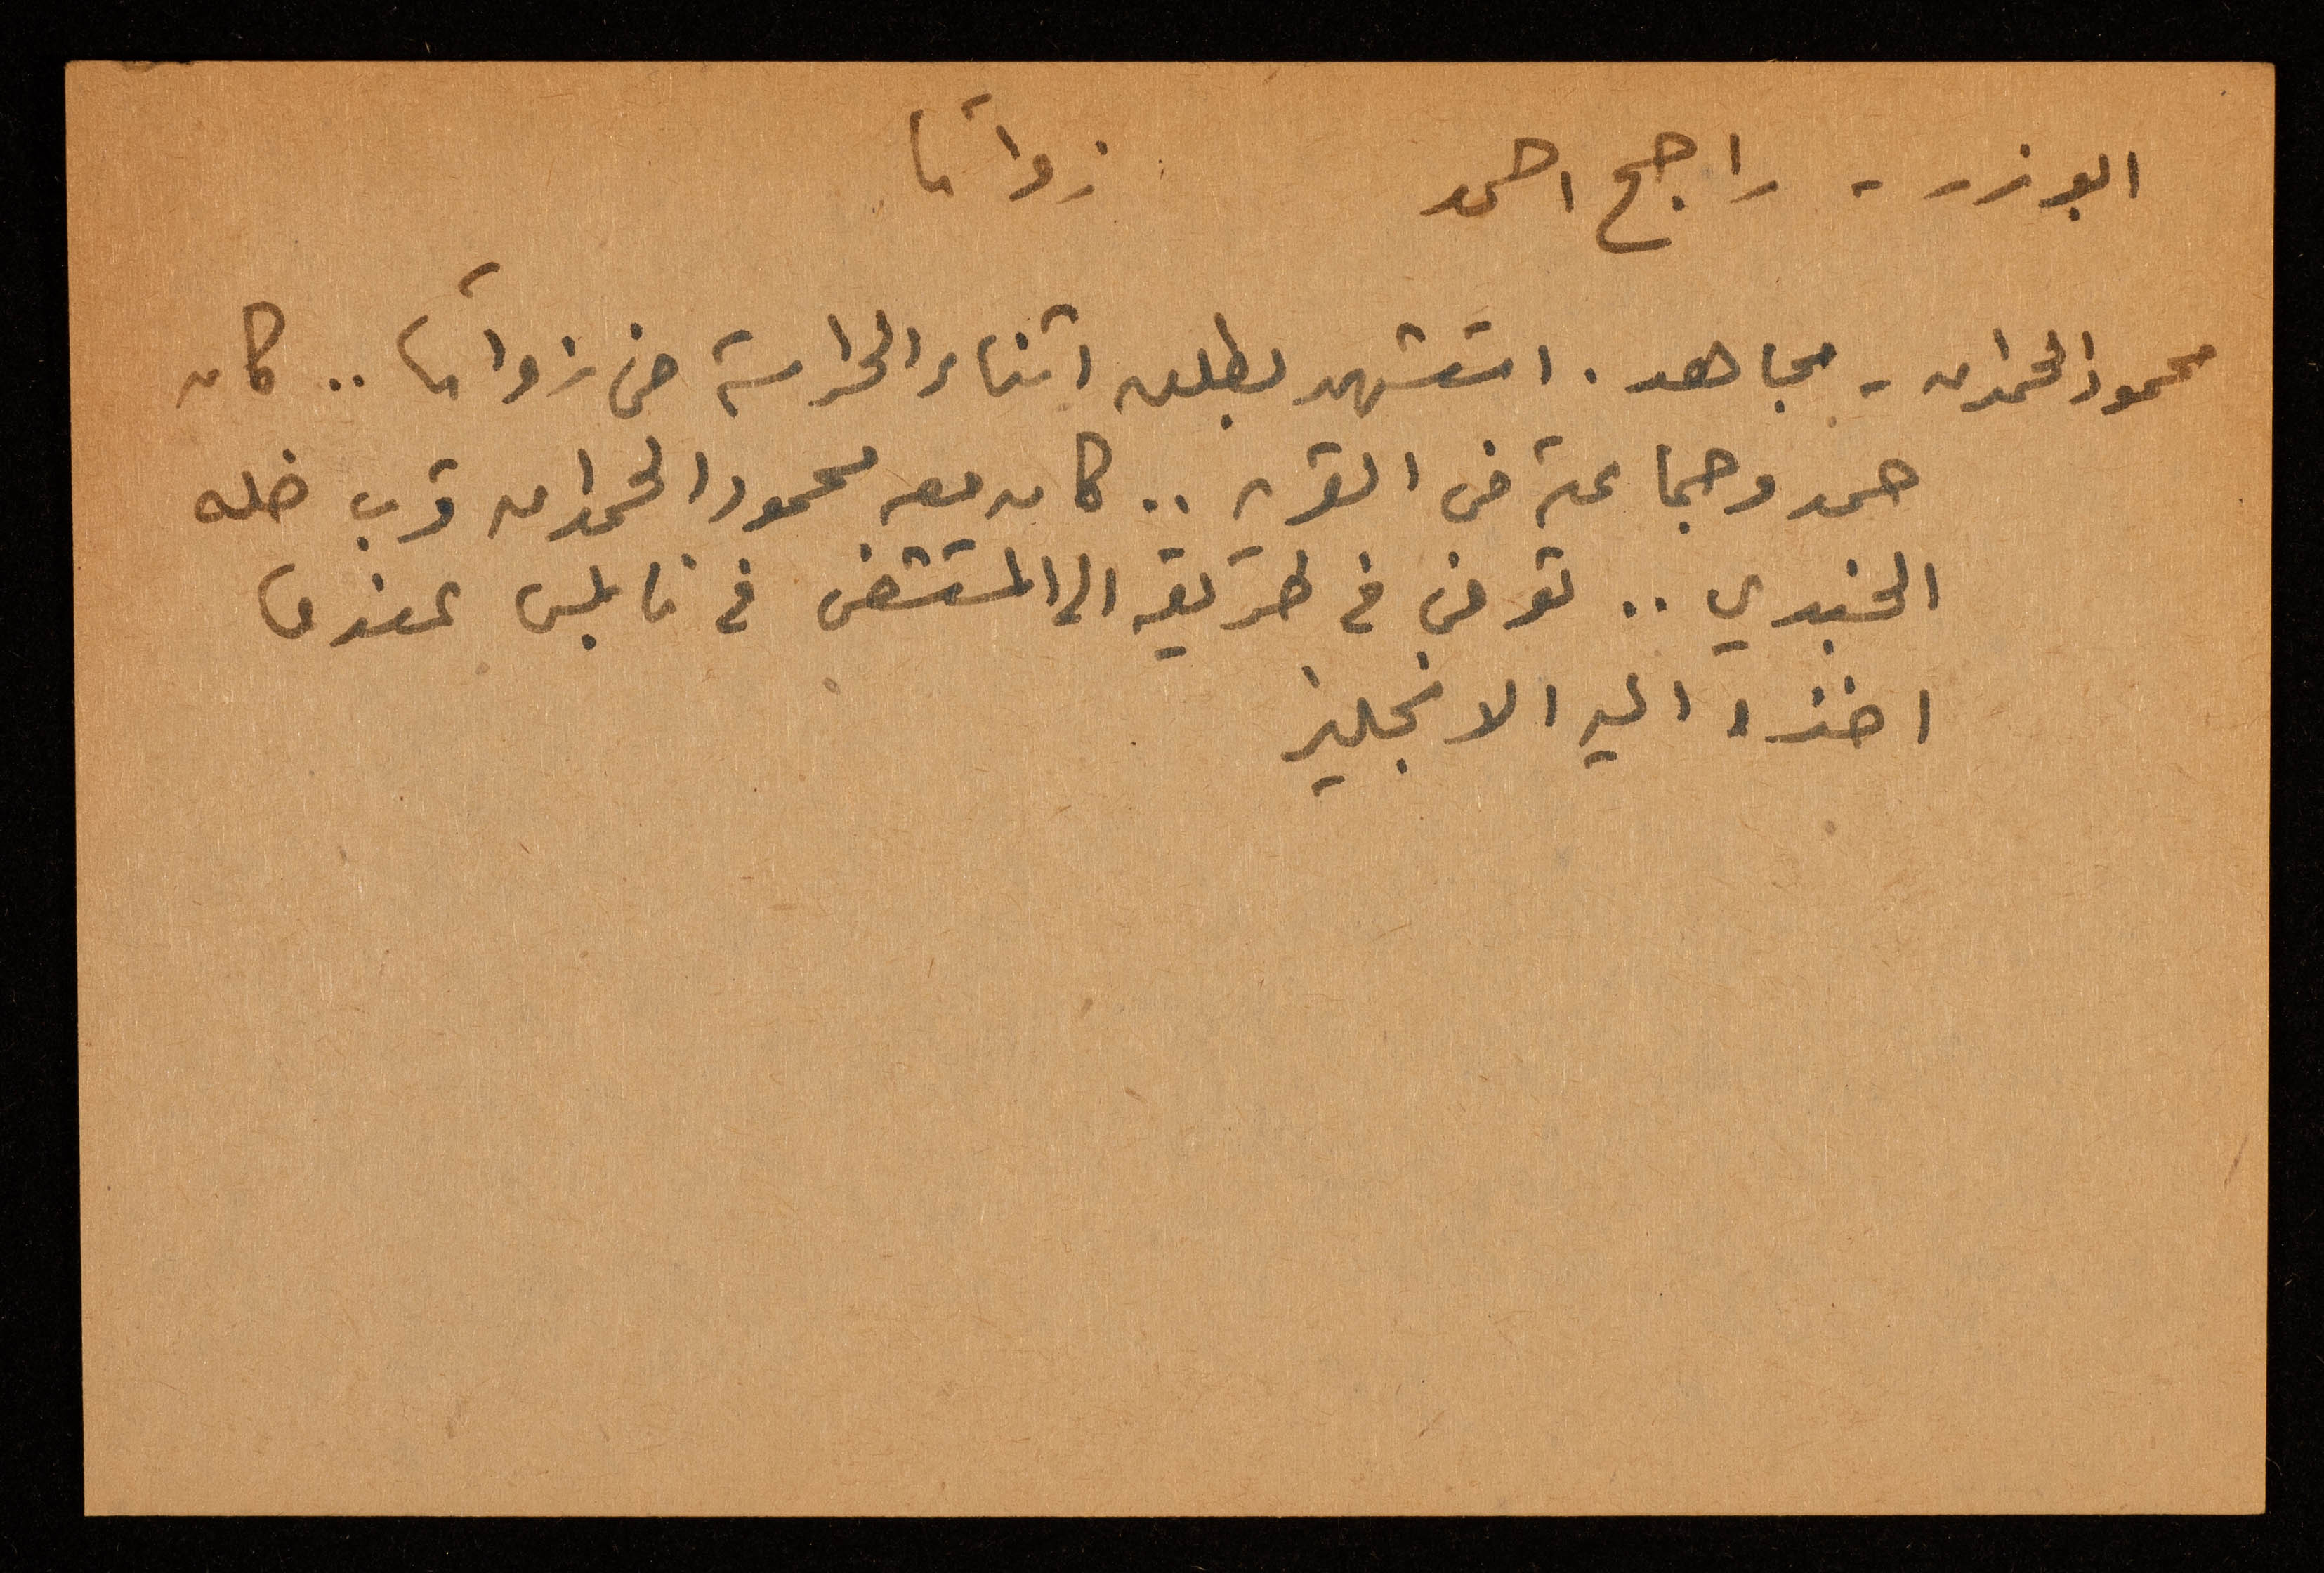 ابو زر - راجح احمد    زواتا
محمود الحمدان - مجاهد . استشهد بطلق اثناء الحراسة في زواتا .. كان
حمد وجماعة في القرية .. كان معه محمود الحمدان قرب خله
الخندي .. توفي في طريقه الى المستشفى في نابلس عندما
اخذه اليه الانجليز